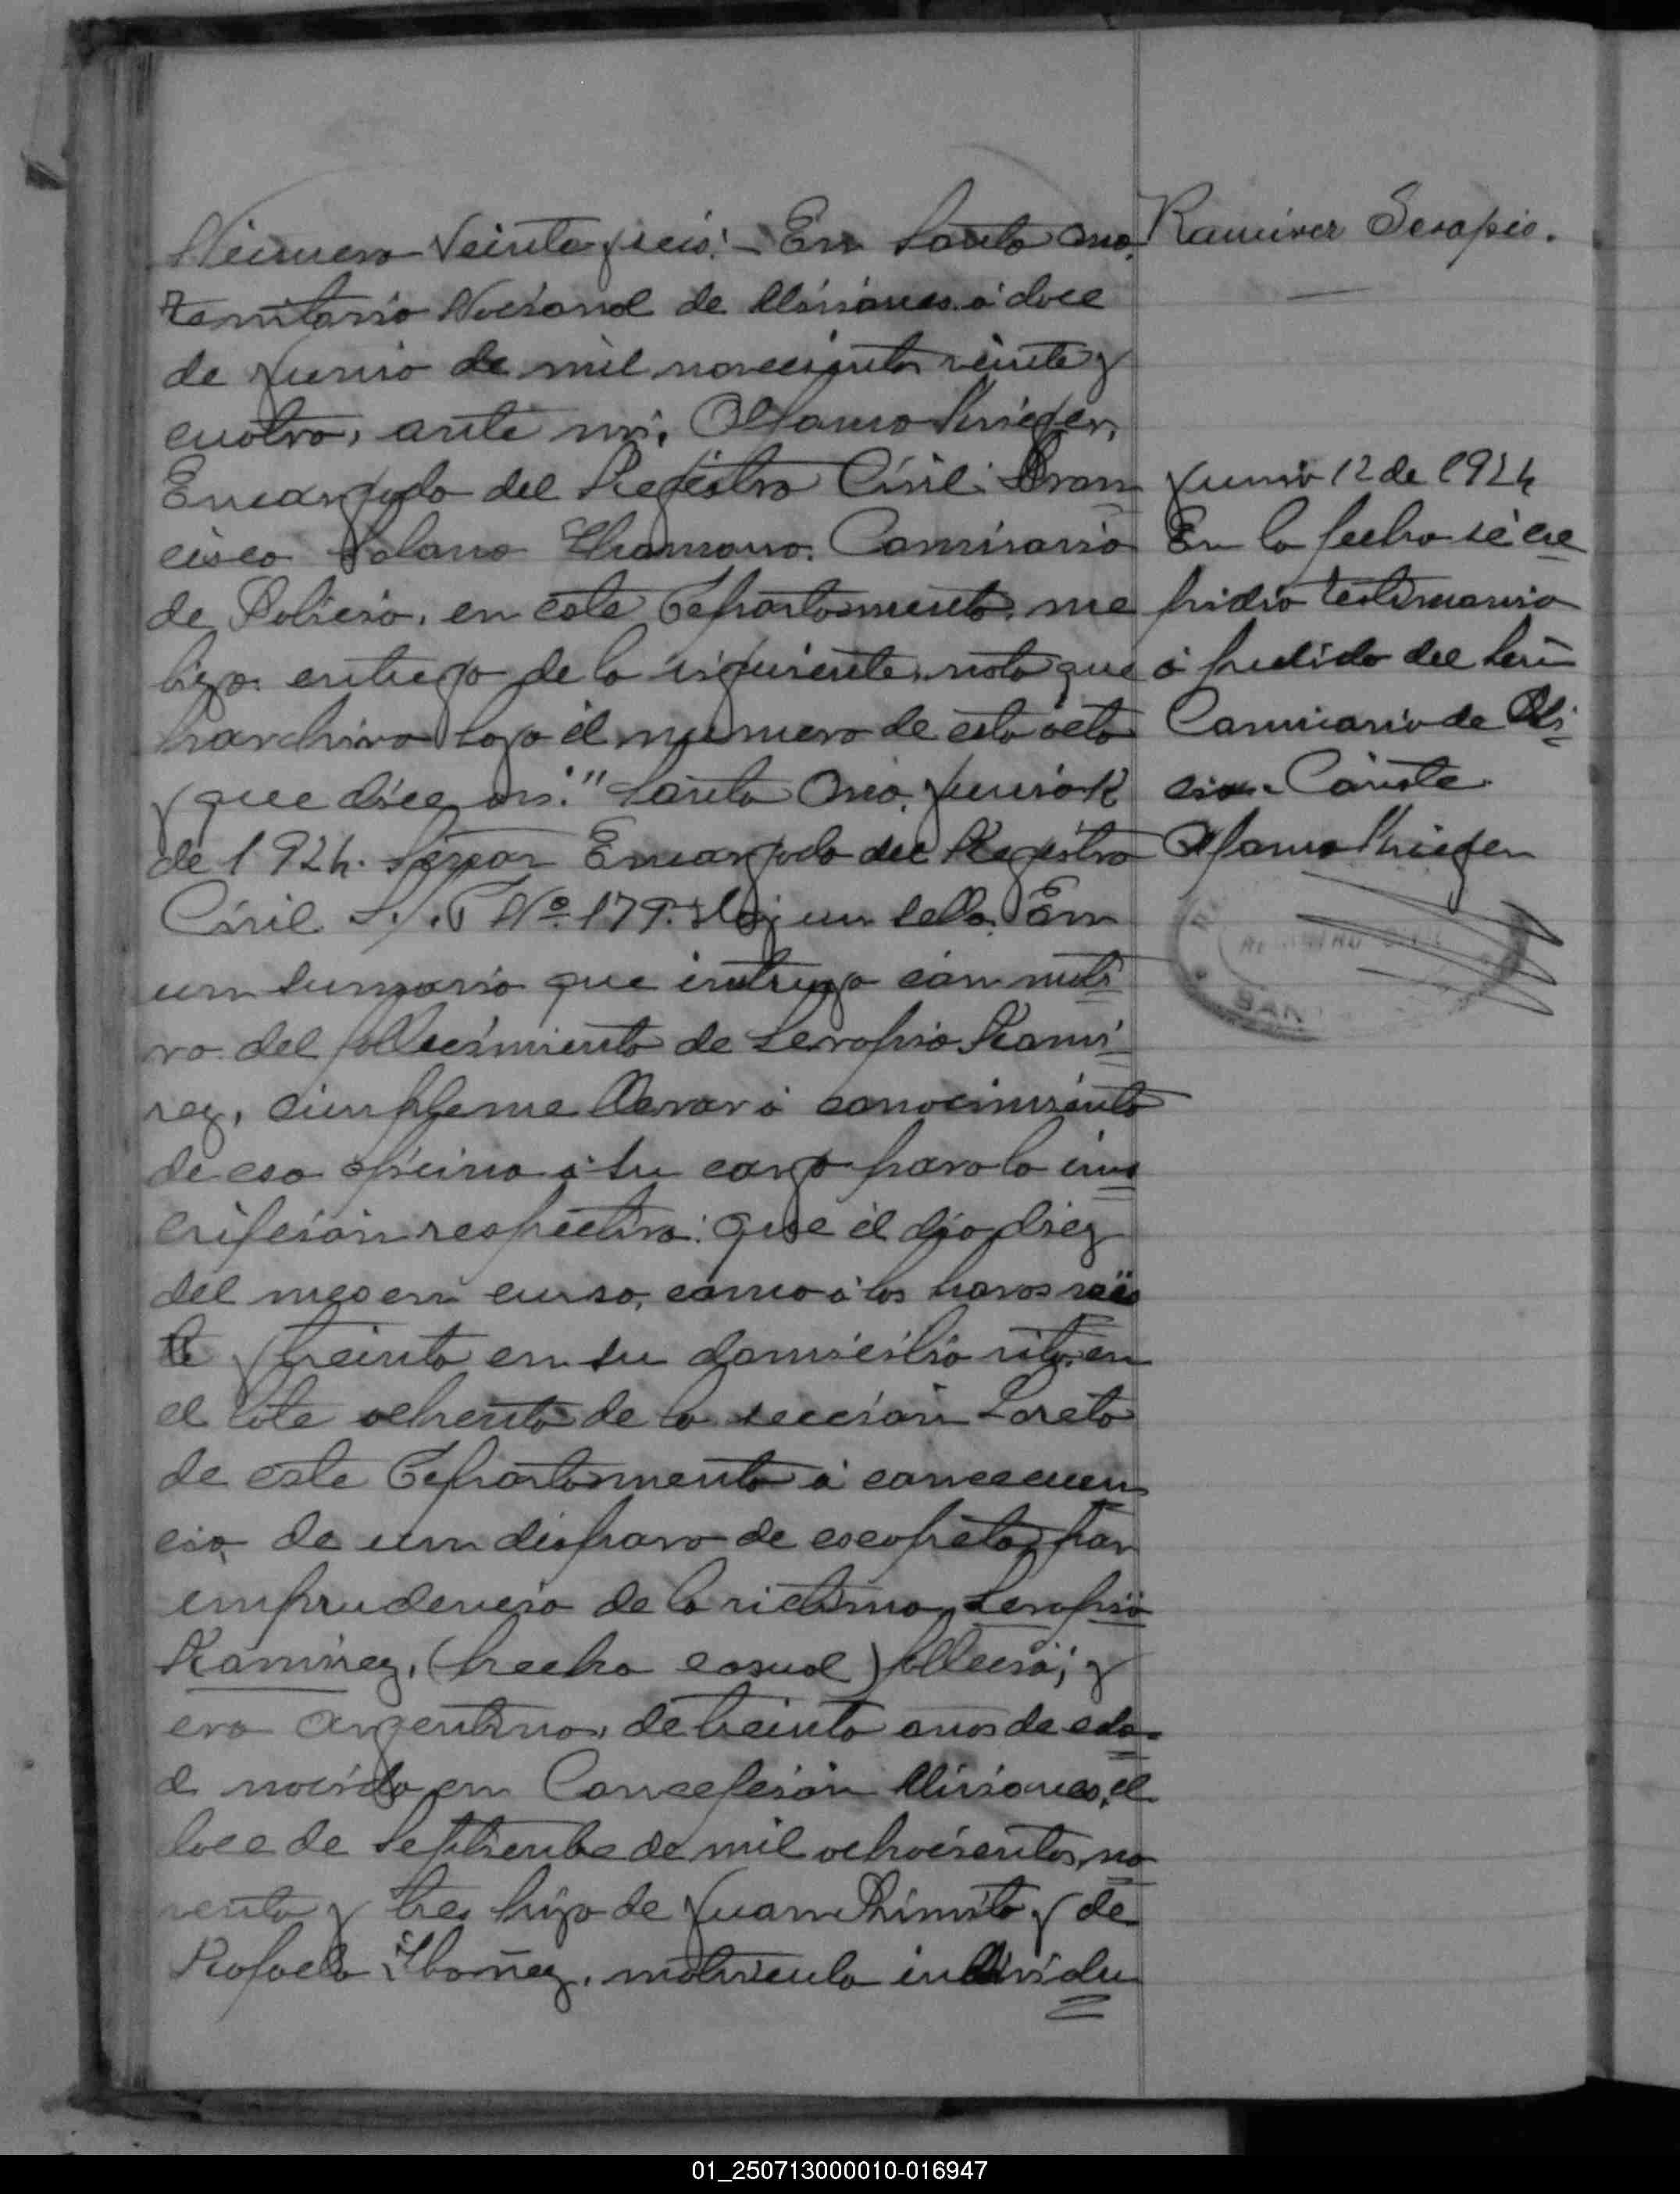 Número Veinte y seis: En Santa Ana,
territorio Nacional de Misiones á doce
de Junio de mil novecientos veinte y
cuatro, ante mí, Krieger,
Encargado del Registro Civil: Fran
cisco Solano Comisario
de Policia, en este Departamento, me
hizo entrega de la siguiente nota que
bajo el numero de esta acta
y que dice asi: "Santa Ana, Junio 12
de 1924. Señor Encargado del Registro
Civil S/. Nº 179. Hay un sello. En
un sumario que instruyo con moti
vo del fallecimiento de Serapio Rami
rez, cumpleme llevar á conocimiento
de esa oficina á su cargo para la ins
cripcion respectiva: que el dia diez
del mes en curso, como á los horas siẽ
te y treinta en su domicilio sito en
el lote ochenta de la seccion Loreto
de este Departamento á consecuen
cia de un disparo de escopeta, por
imprudencia de la victima, Serapio
Ramirez, (hecho casual) falleció; y
era argentino, de treinta anos de eda-
d nacido en Concepcion Misiones, el
doce de Septiembe de mil ochocientos no
venta y tres hijo de Juan y de
Rafaela Ibañez, matricula individu
Ramirez Serapio.
Junio 12 de 1924
En la fecha se ex
pidio testimonio
á pedido del Señ
Comisario de Poli
cia. Conste
Krieger
SAN